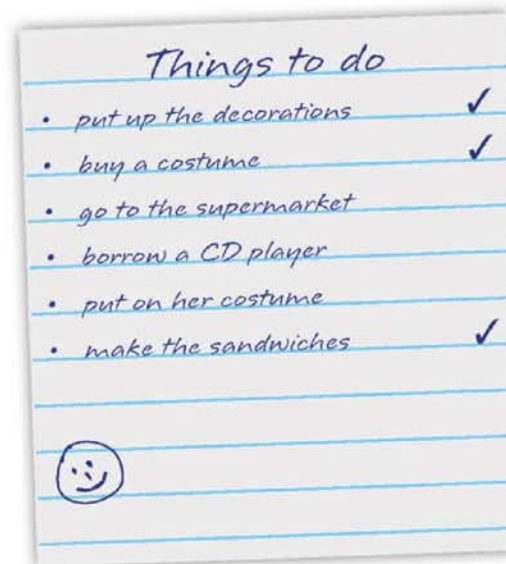 Things to do
• put up the decorations ✓
• buy a costume ✓
• go to the supermarket
• borrow a CD player
• put on her costume
• make the sandwiches ✓